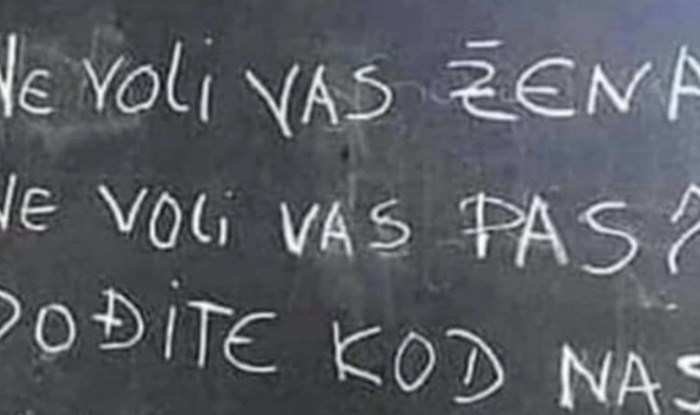 NE VOLI VAS ŽENA
NE VOLI VAS PAS?
DOĐITE KOD NAS